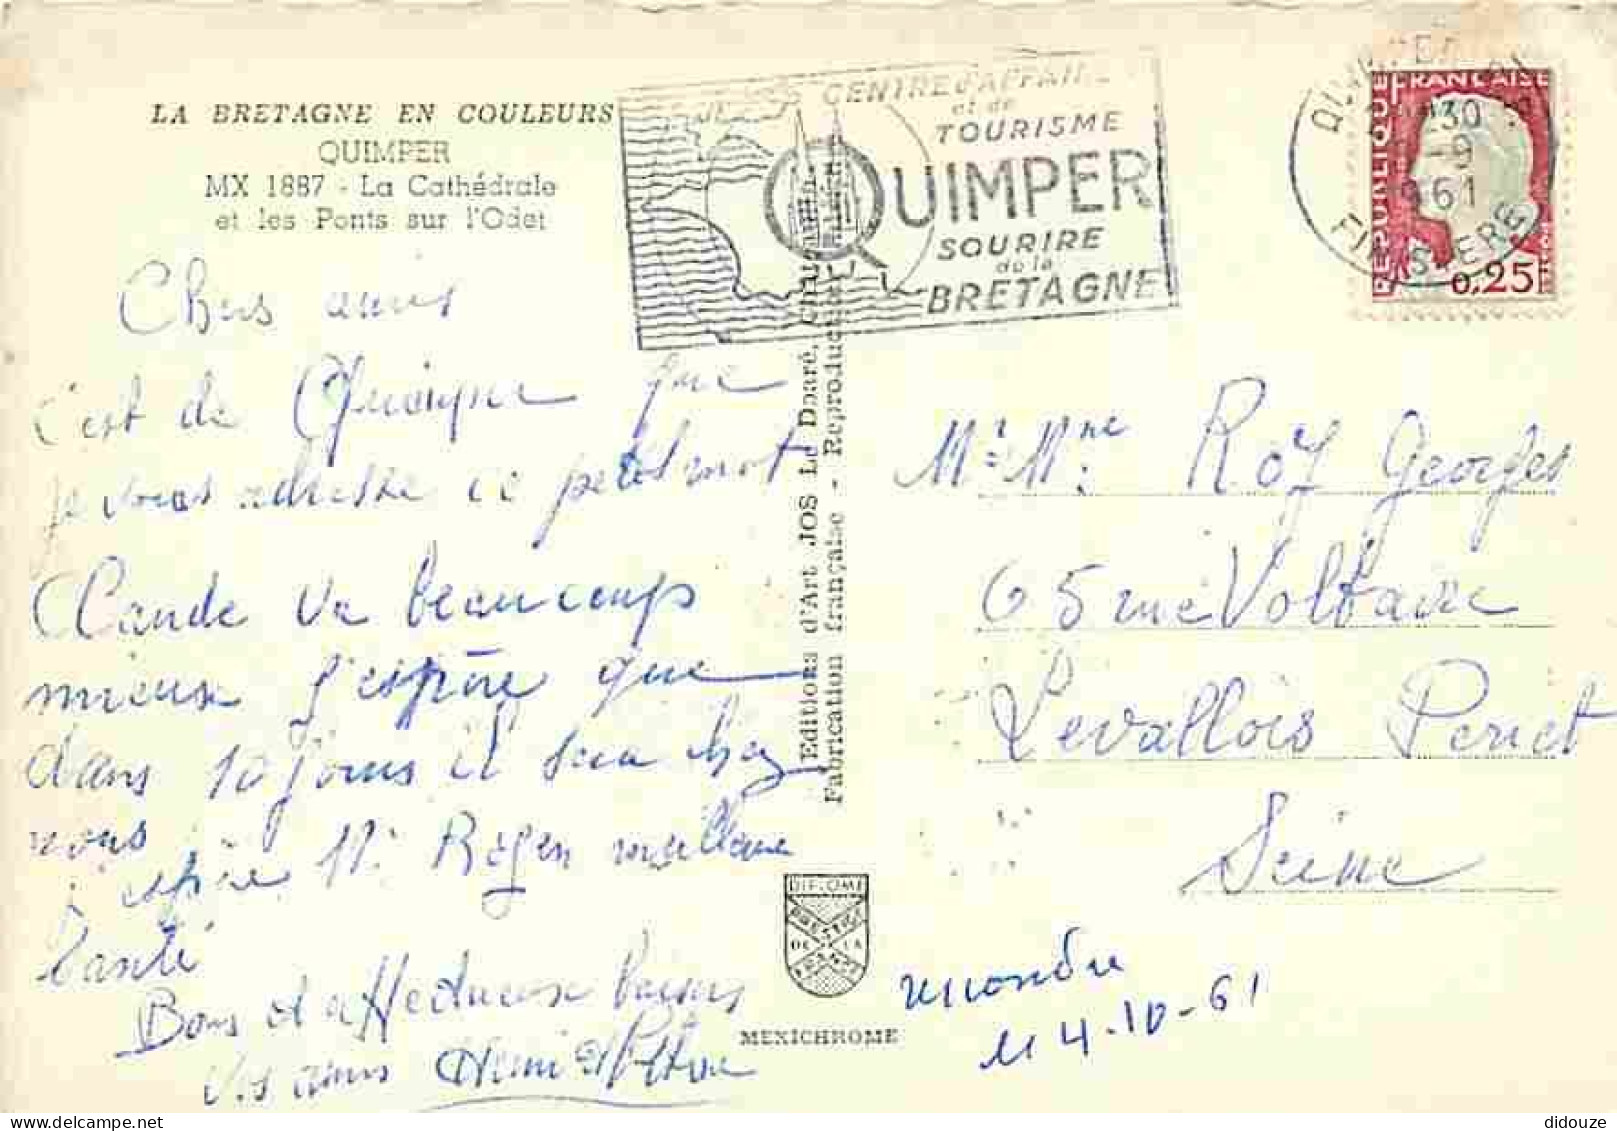 LA BRETAGNE EN COULEURS
QUIMPER
MX 1887 - La Cathédrale
et les Ponts sur l'Odet
CENTRE d'AFFAIRES
et de
TOURISME
QUIMPER
SOURIRE
de la
BRETAGNE
QUIMPER
30
-9
1961
FINISTERE
REPUBLIQUE FRANÇAISE
0,25
Chers amis
C'est de Quimper que
je vous adresse ce petit mot
Claude va beaucoup
mieux j'espère que
dans 10 jours il sera chez
nous
j'espère Mr Roger meilleure
santé
Bons et affectueux baisers
Vos amis Henri et
Editions d'Art JOS Le Doaré, Châteaulin
Fabrication française - Reproduction
DIPLOME
PRESTIGE
DE LA
FRANCE
MEXICHROME
Mr Mme Roy Georges
65 rue Voltaire
Levallois Perret
Seine
répondu
le 4-10-61
didouze